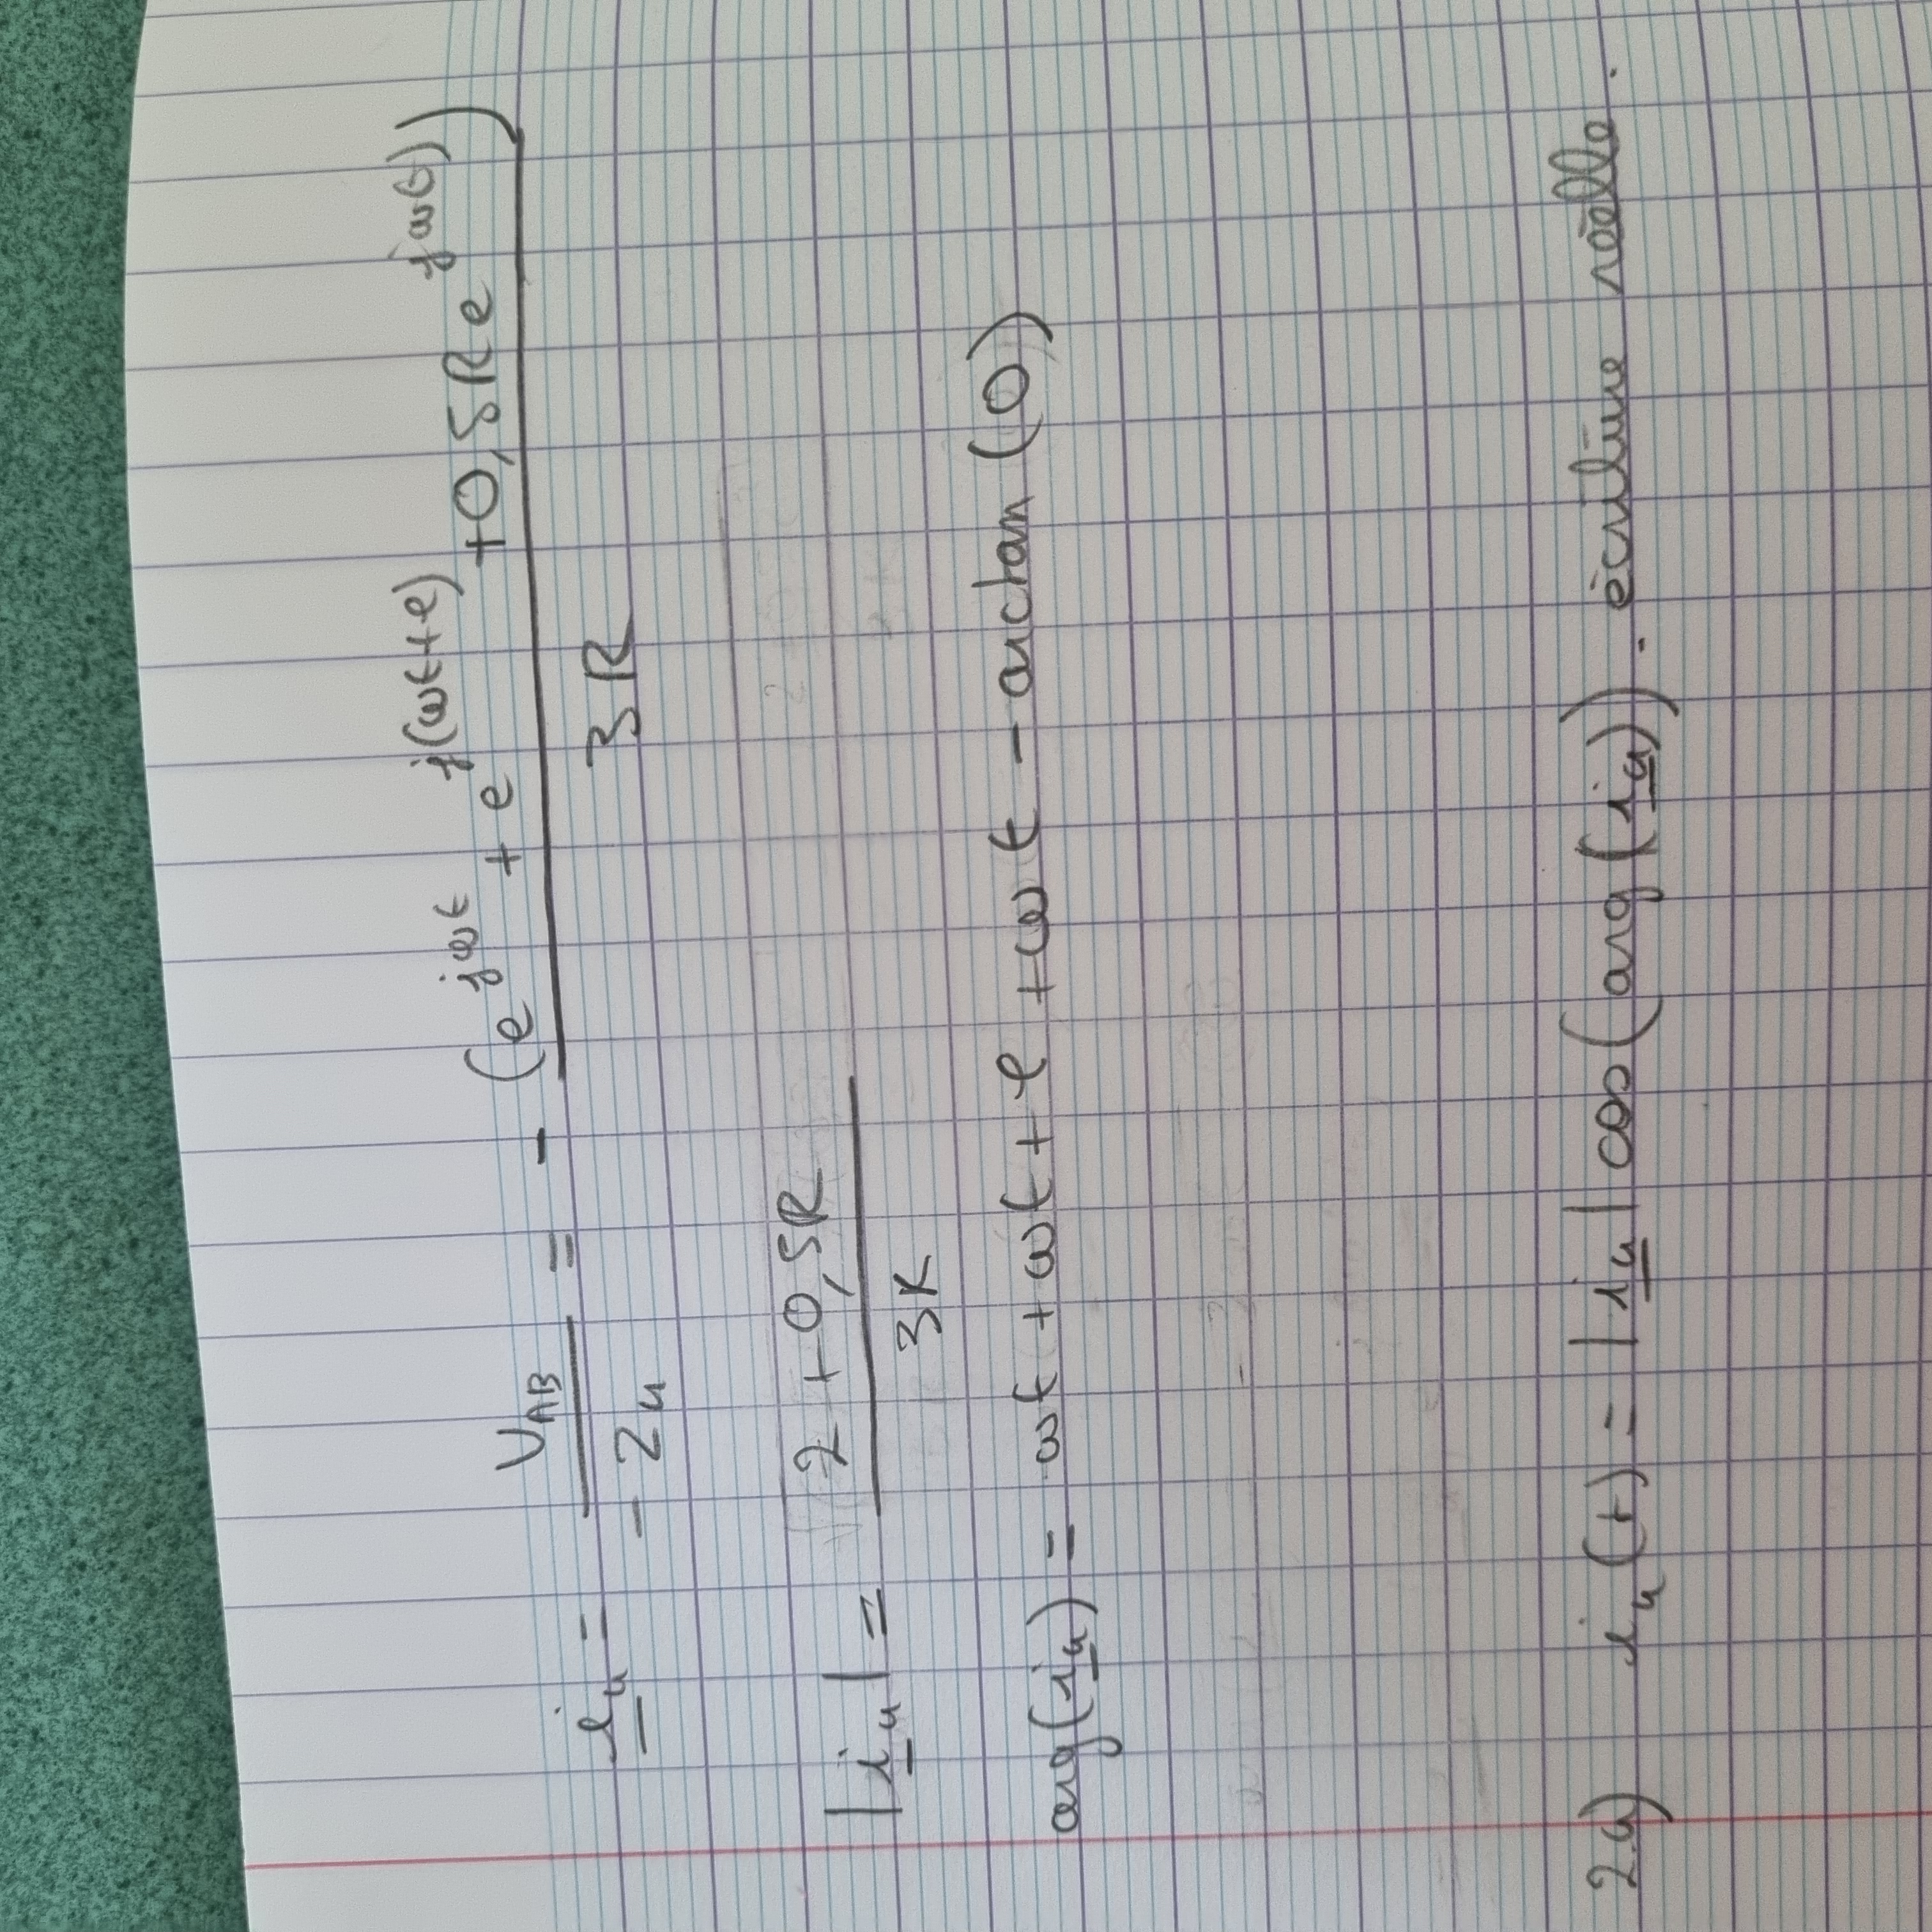 i_u = U_AB / - Z_u = - (e^jωt + e^j(ωt+φ) + 0,5R e^jωt)) / 3R
|i_u| = 2 + 0,5R / 3R
arg(i_u) = ωt + ωt + φ + ωt - arctan (0)
2.a) i_u(t) = |i_u| cos(arg(i_u)). écriture réelle.